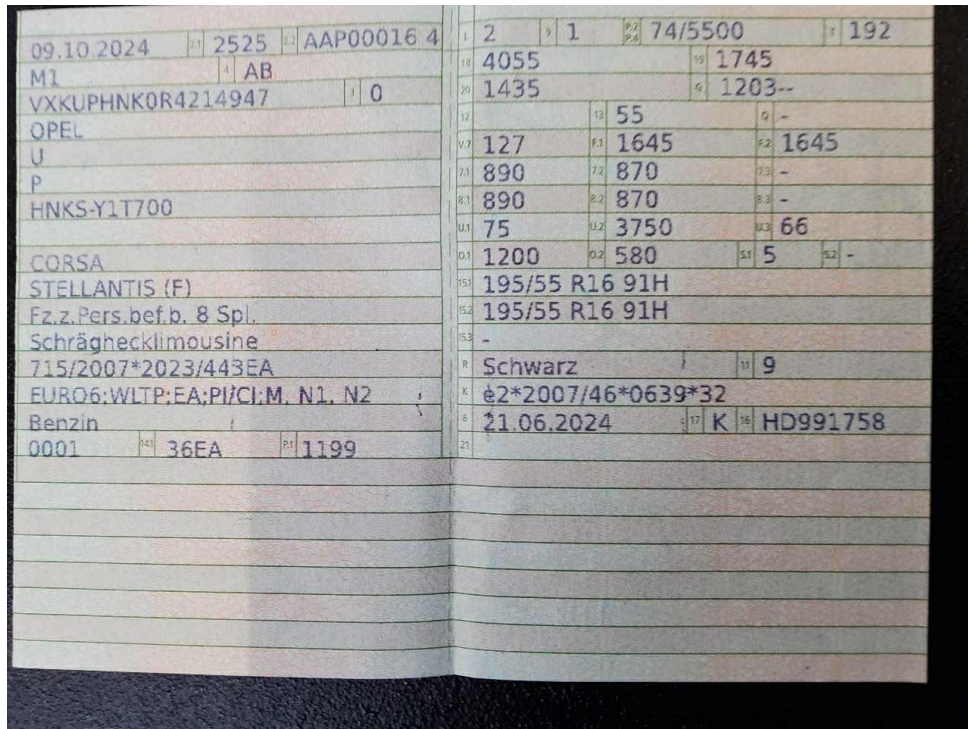 09.10.2024 2.1 2525 2.2 AAP00016 4
M1 4 AB
VXKUPHNK0R4214947 3 0
OPEL
U
P
HNKS-Y1T700
CORSA
STELLANTIS (F)
Fz.z.Pers.bef.b. 8 Spl.
Schräghecklimousine
715/2007*2023/443EA
EURO6;WLTP;EA;PI/CI;M, N1, N2
Benzin
0001 14.1 36EA P.1 1199
L 2 9 1 P.2 P.4 74/5500 T 192
18 4055 19 1745
20 1435 G 1203--
12 13 55 Q -
V.7 127 F.1 1645 F.2 1645
7.1 890 7.2 870 7.3 -
8.1 890 8.2 870 8.3 -
U.1 75 U.2 3750 U.3 66
O.1 1200 O.2 580 S.1 5 S.2 -
15.1 195/55 R16 91H
15.2 195/55 R16 91H
15.3 -
R Schwarz 11 9
K e2*2007/46*0639*32
6 21.06.2024 17 K 16 HD991758
21